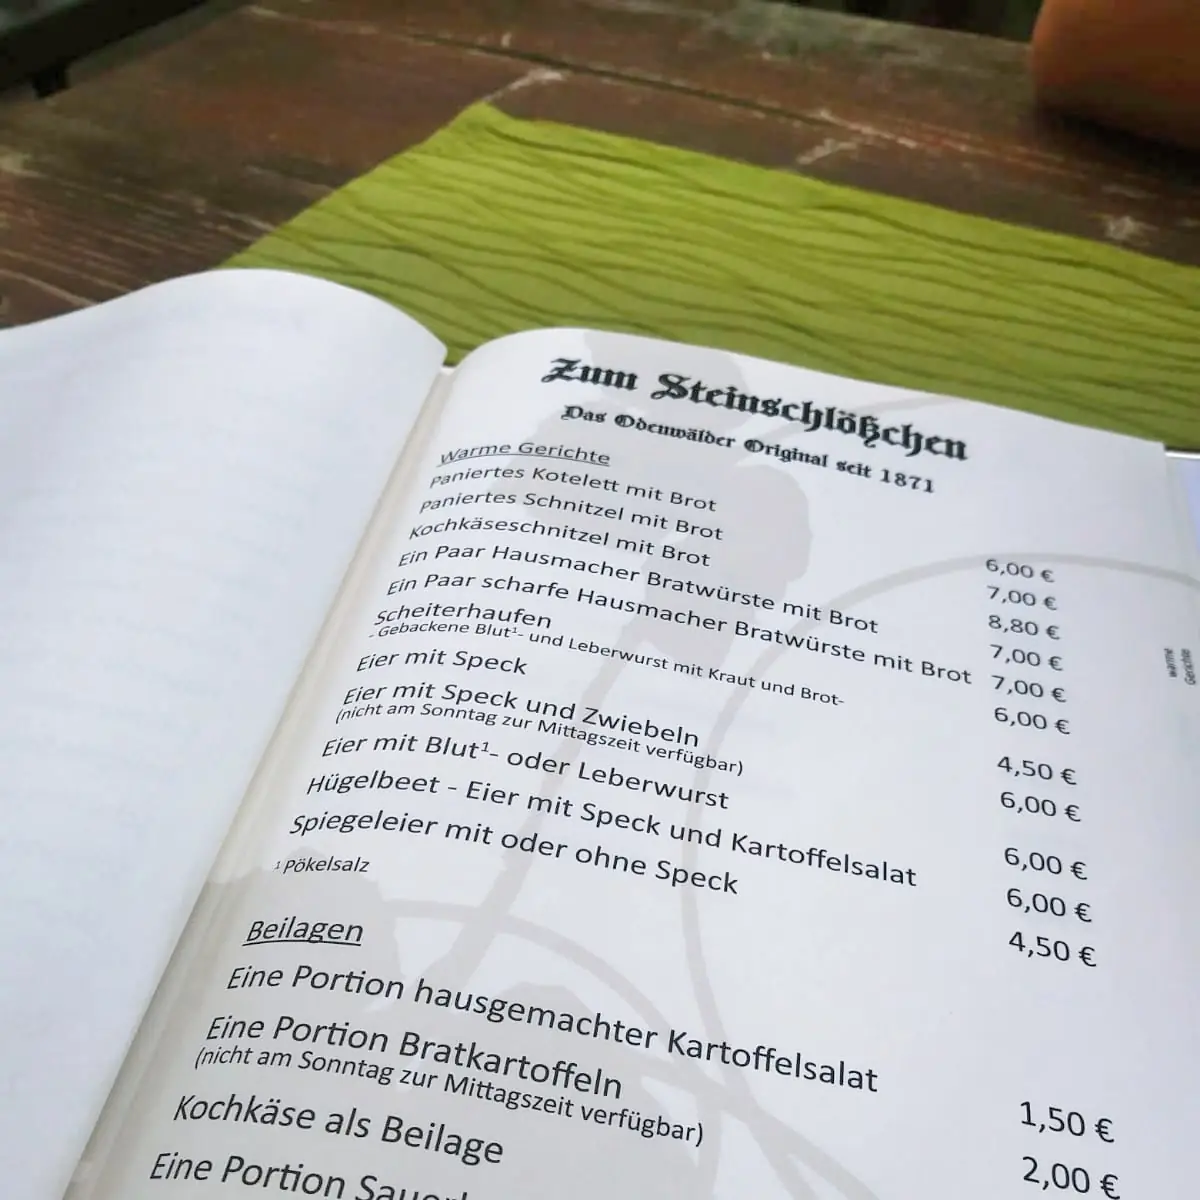 Zum Steinschlößchen
Das Odenwälder Original seit 1871
Warme Gerichte
Paniertes Kotelett mit Brot 6,00 €
Paniertes Schnitzel mit Brot 7,00 €
Kochkäseschnitzel mit Brot 8,80 €
Ein Paar Hausmacher Bratwürste mit Brot 7,00 €
Ein Paar scharfe Hausmacher Bratwürste mit Brot 7,00 €
Scheiterhaufen 6,00 €
- Gebackene Blut¹- und Leberwurst mit Kraut und Brot-
Eier mit Speck 4,50 €
Eier mit Speck und Zwiebeln 6,00 €
(nicht am Sonntag zur Mittagszeit verfügbar)
Eier mit Blut¹- oder Leberwurst 6,00 €
Hügelbeet - Eier mit Speck und Kartoffelsalat 6,00 €
Spiegeleier mit oder ohne Speck 4,50 €
¹ Pökelsalz
Beilagen
Eine Portion hausgemachter Kartoffelsalat 1,50 €
Eine Portion Bratkartoffeln 2,00 €
(nicht am Sonntag zur Mittagszeit verfügbar)
Kochkäse als Beilage
Eine Portion
warme
Gerichte